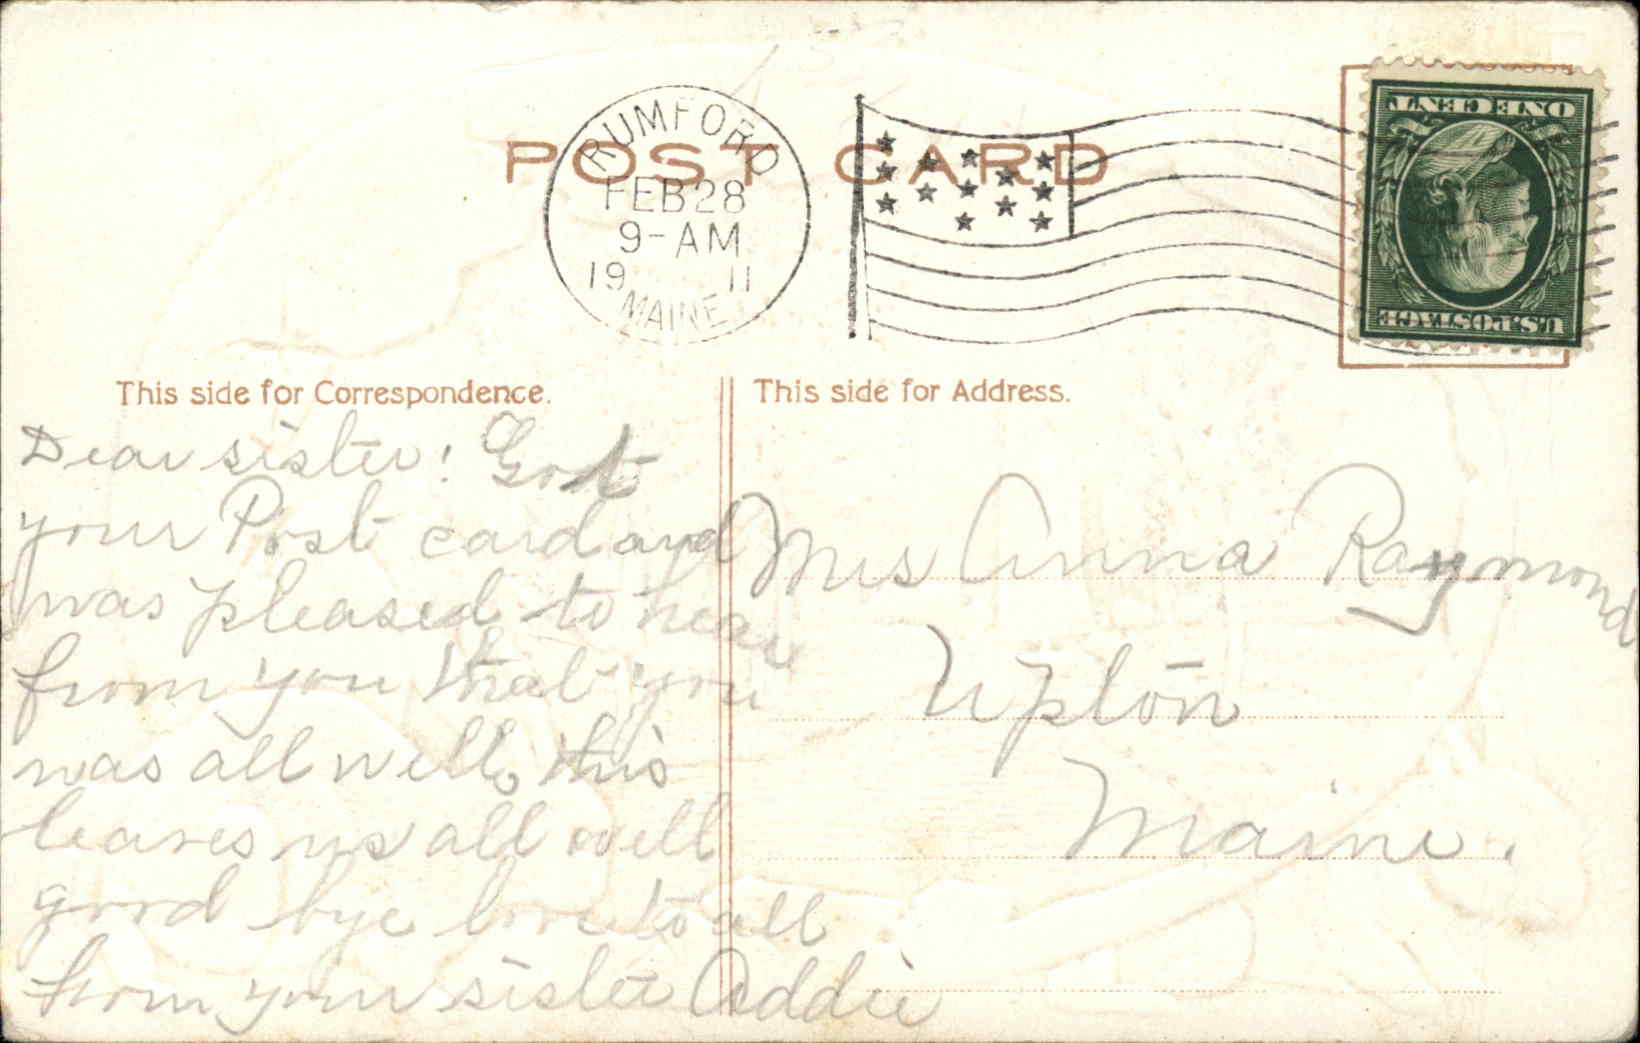 POST CARD
RUMFORD
FEB 28
9-AM
19 11
MAINE
ONE CENT
U.S. POSTAGE
This side for Correspondence.
Dear sister! Got
your Post card and
was pleased to hear
from you that you
was all well, this
leaves us all well
good bye love to all
from your sister Addie
This side for Address.
Mrs Anna Raymond
Upton
Maine.